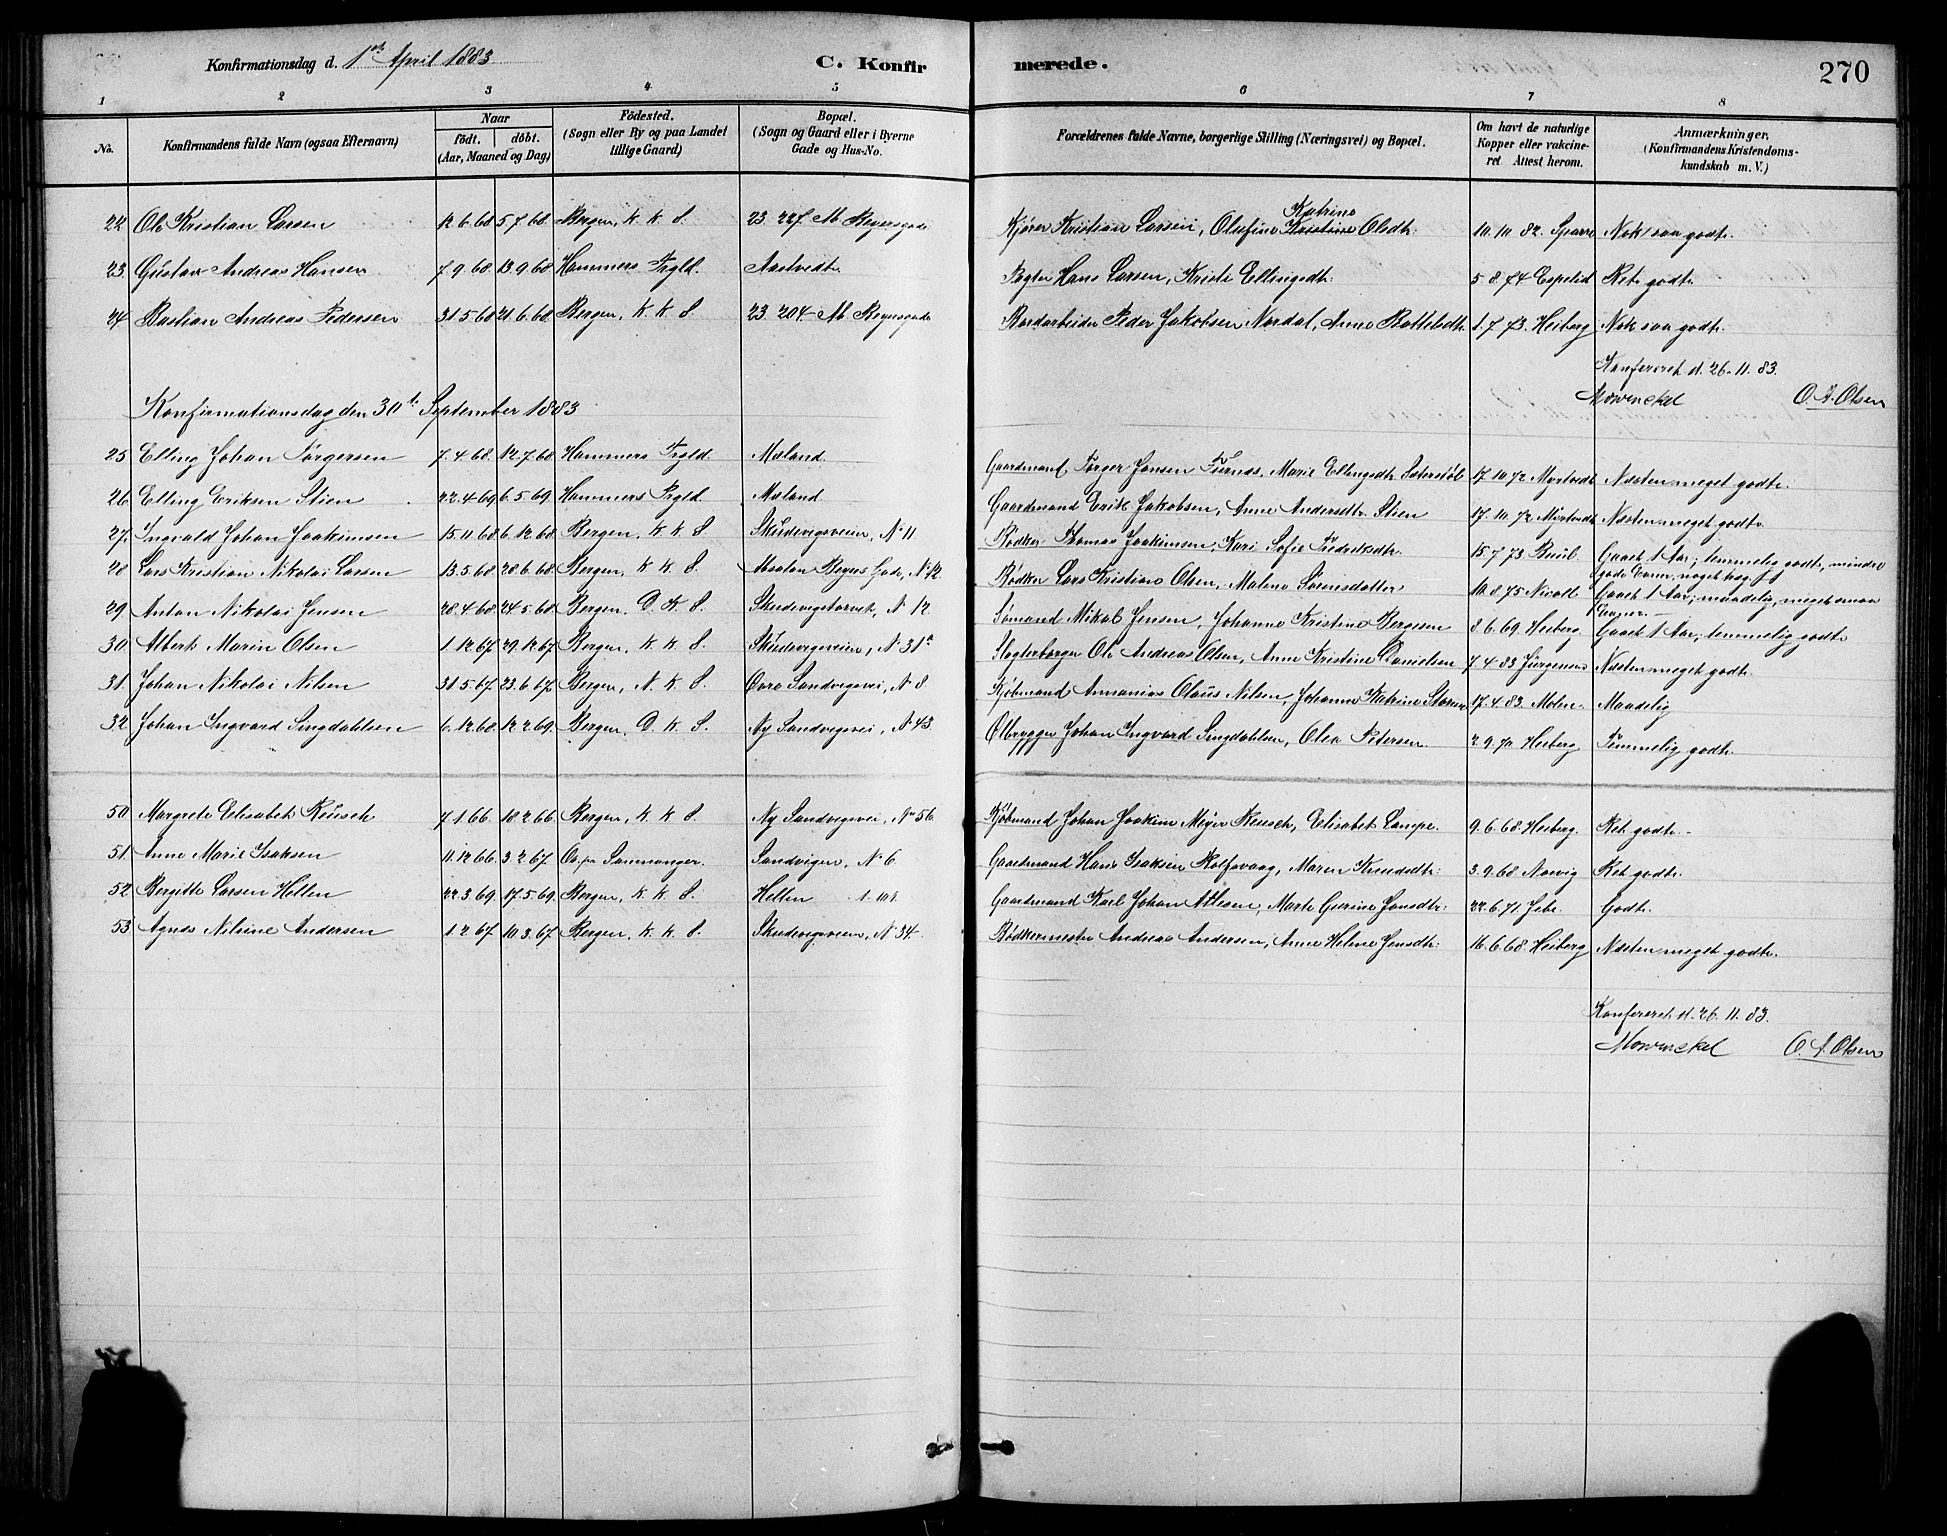 Konfirmationsdag d. 1ste April 1883. C. Konfirmerede. 270
1 2 3 4 5 6 7 8
No. Konfirmandens fulde Navn (ogsaa Efternavn) Naar født. døbt. (Aar, Maaned og Dag) Fødested. (Sogn eller By og paa Landet tillige Gaard) Bopæl. (Sogn og Gaard eller i Byerne Gade og Hus-No. Forældrenes fulde Navne, borgerlige Stilling (Næringsvei) og Bopæl. Om havt de naturlige Kopper eller vakcineret Attest herom. Anmærkninger. (Konfirmandens Kristendomskundskab m. V.)
22. Ole Kristian Larsen 12.6.68 5.7.68 Bergen, K. K. S. 23. 227 A. Beyersgade Kjører Kristian Larsen, Olufine Katrine Olsdtr. 10.10.82. Sparre Nok saa godt.
23. Gustav Andreas Hansen 7.9.68. 13.9.68 Hammers Prgld. Aastvedt Pagter Hans Larsen, Kristi Ellingsdtr: 5.8.74 Espelid Ret godt.
24 Bastian Andreas Pedersen 31.5.68 21.6.68. Bergen, K. K. S. 23. 204 A. Beyersgade Bordarbeider Peder Jakobsen Nordal, Anne Bottelsdtr. 1.7.73. Heiberg Nok saa godt.
Konfereret d. 26.11.83.
Mowinckel O. A. Olsen
Konfirmationsdag den 30te September 1883
25 Elling Johan Torgersen 7.4.68. 12.7.68 Hammers Prgld. Mæland Gaardmand Torger Jonsen, Marie Ellingsdtr 17.10.72 Næsten meget godt.
26. Elling Eriksen Stien 22.4.69 6.5.69. Hammers Prgld. Mæland Gaardmand Erik Jakobsen, Anne Andersdtr. Stien 17.10.72 Næsten meget godt.
27. Ingvald Johan Joakimsen 15.11.68 6.12.68 Bergen, K. K. S. Skudevigsveien, No 11 Bødker Thomas Joakimsen, Kari Sofie Fredriksdtr. 15.7.73 Gaaet 1 Aar; temmelig godt, mindre gode Evner, meget
28 Lars Kristian Nikolai Larsen 13.5.68 28.6.68 Bergen, K. K. S. Absalon Beyers Gade, No 12. Bødker Lars Kristian Olsen, Malene Svensdatter 10.8.75 Nicoll. Gaaet 1 Aar; maadelig, meget smaa Evner.
29 Anton Nikolai Jensen 28.4.68 24.5.68 Bergen, D. K. S. Skudevigstorvet, No 12 Sømand Mikal Jensen, Johanne Kristine Bergesen 8.6.69 Heiberg. Gaaet 1 Aar; temmelig godt.
30. Albert Marin Olsen 1.12.67 29.12.67 Bergen, K. K. S. Skudevigsveien, No 31a Slagterborger Ole Andreas Olsen, Anne Kristine Danielsen 7.4.83 Jürgensen Næsten meget godt.
31. Johan Nikolai Nilsen 31.5.67 23.6.67 Bergen, N. K. S. Øvre Sandvigsvei, No 8. Kjøbmand Annanias Olaus Nilsen, Johanne Katrine 17.4.83. Maadelig
32 Johan Ingvard Singdahlsen 6.12.68 12.2.69. Bergen, D. K. S. Ny Sandvigsvei, No 43. Ølbrygger Johan Ingvard Singdahlsen, Olea Petersen. Heiberg Temmelig godt.
50 Margrete Elisabet Reusch 7.1.66 18.2.66 Bergen, K. K. S. Ny Sandvigsvei, No 56 Kjøbmand Johan Joakim Meyer Reusch, Elisabet Lampe. 9.6.68 Heiberg. Ret godt.
51. Anne Marie Isaksen 11.12.66. 3.2.67. Os. pr. Sammanger. Sandvigen, No 6 Gaardmand Hans Isaksen Rolfsvaag, Maren Knudsdtr: 3.9.68 Ret godt.
52. Bergitte Larsen Hellen 22.3.69. 17.5.69. Bergen, K. K. S. Hellen Gaardmand Karl Johan Attesen, Marte Gurine Jonsdtr: 22.6.71 Godt.
53. Agnes Nilsine Andersen 1.2.67 10.3.67 Bergen, K. K. S. Skudevigsveien, No 34. Bødkermester Andreas Andersen, Anne Helene Jensdtr: 16.6.68 Heiberg Næsten meget godt.
Konfereret d. 26.11.83.
Mowinckel O. A. Olsen